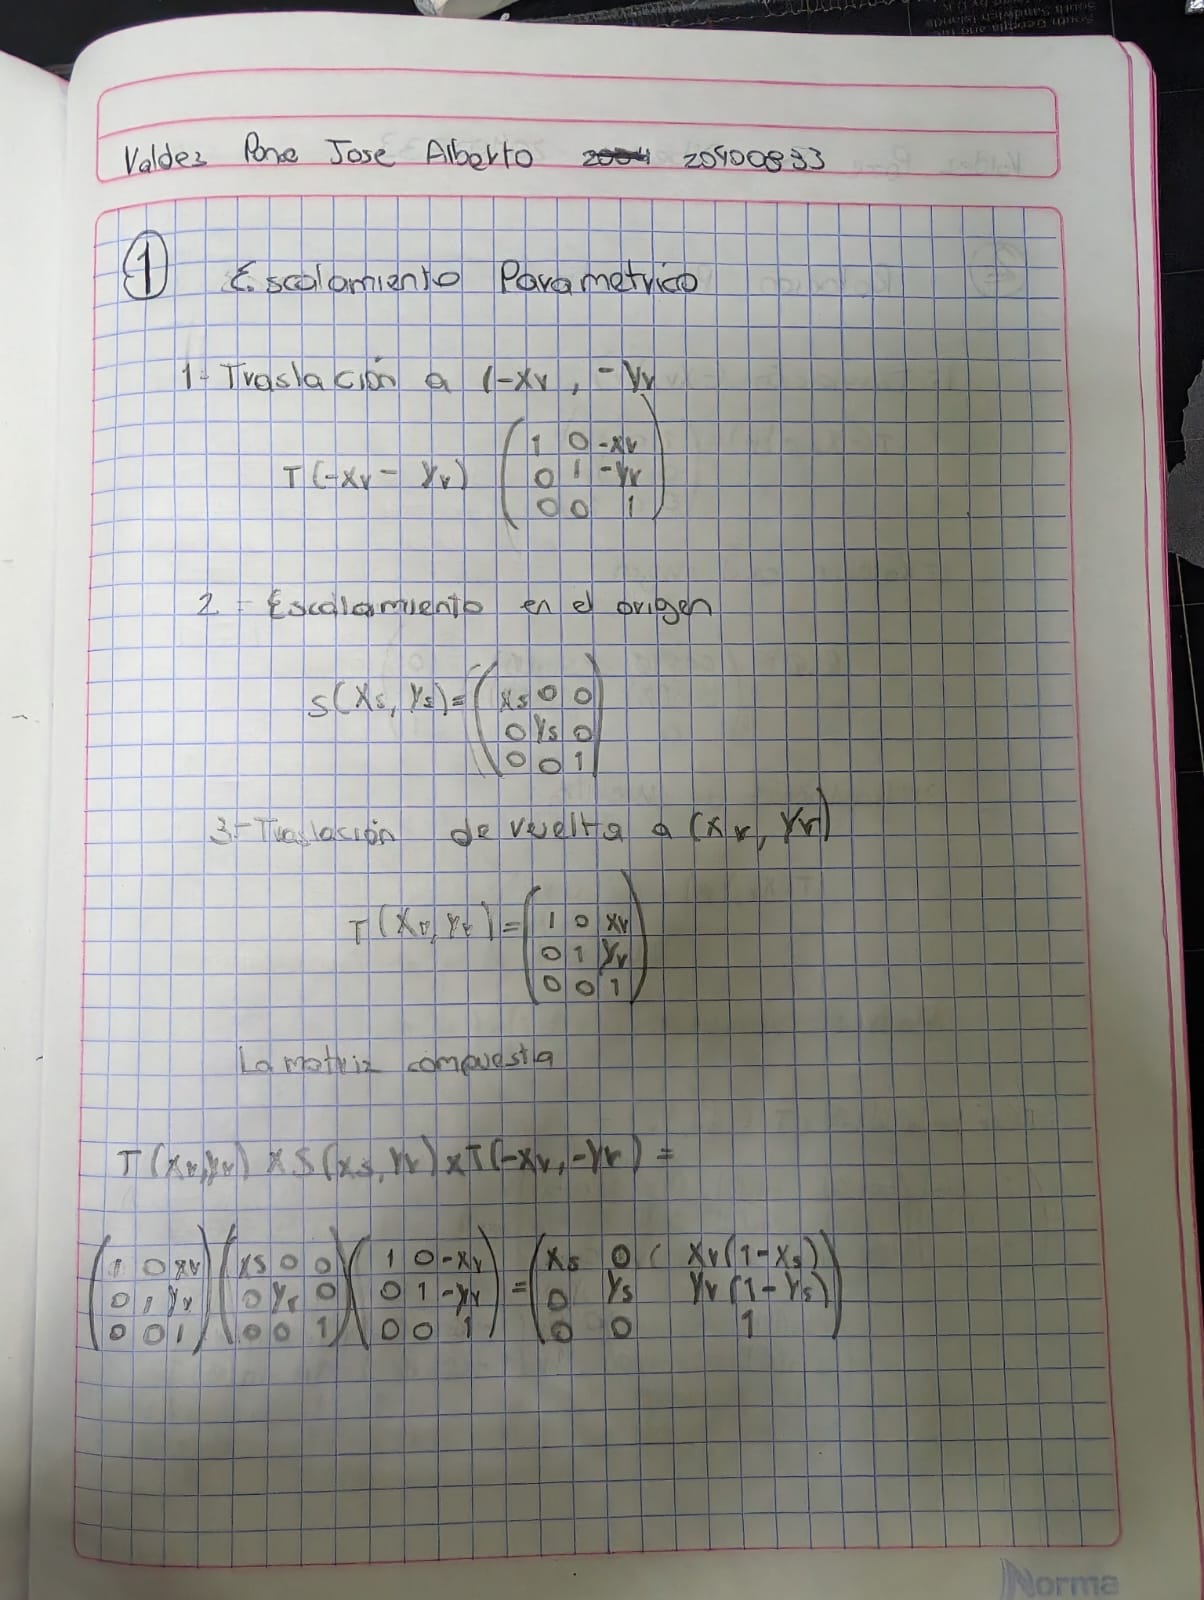 Valdez Ponce Jose Alberto 20400833
1
Escalamiento Parametrico
1- Traslación a (-xr, -yr
T(-xr - yr) (1 0 -xr
0 1 -yr
0 0 1)
2- Escalamiento en el origen
S(xs, ys) = (xs 0 0
0 ys 0
0 0 1)
3- Traslación de vuelta a (xr, yr)
T(xr, yr) = (1 0 xr
0 1 yr
0 0 1)
La matriz compuesta
T(xr, yr) x S(xs, yr) x T(-xr, -yr) =
(1 0 xr) (xs 0 0) (1 0 -xr) = (xs 0 ( xr(1-xs)
0 1 yr 0 ys 0 0 1 -yr 0 ys yr(1-ys)
0 0 1 0 0 1 0 0 1 0 0 1)
Norma